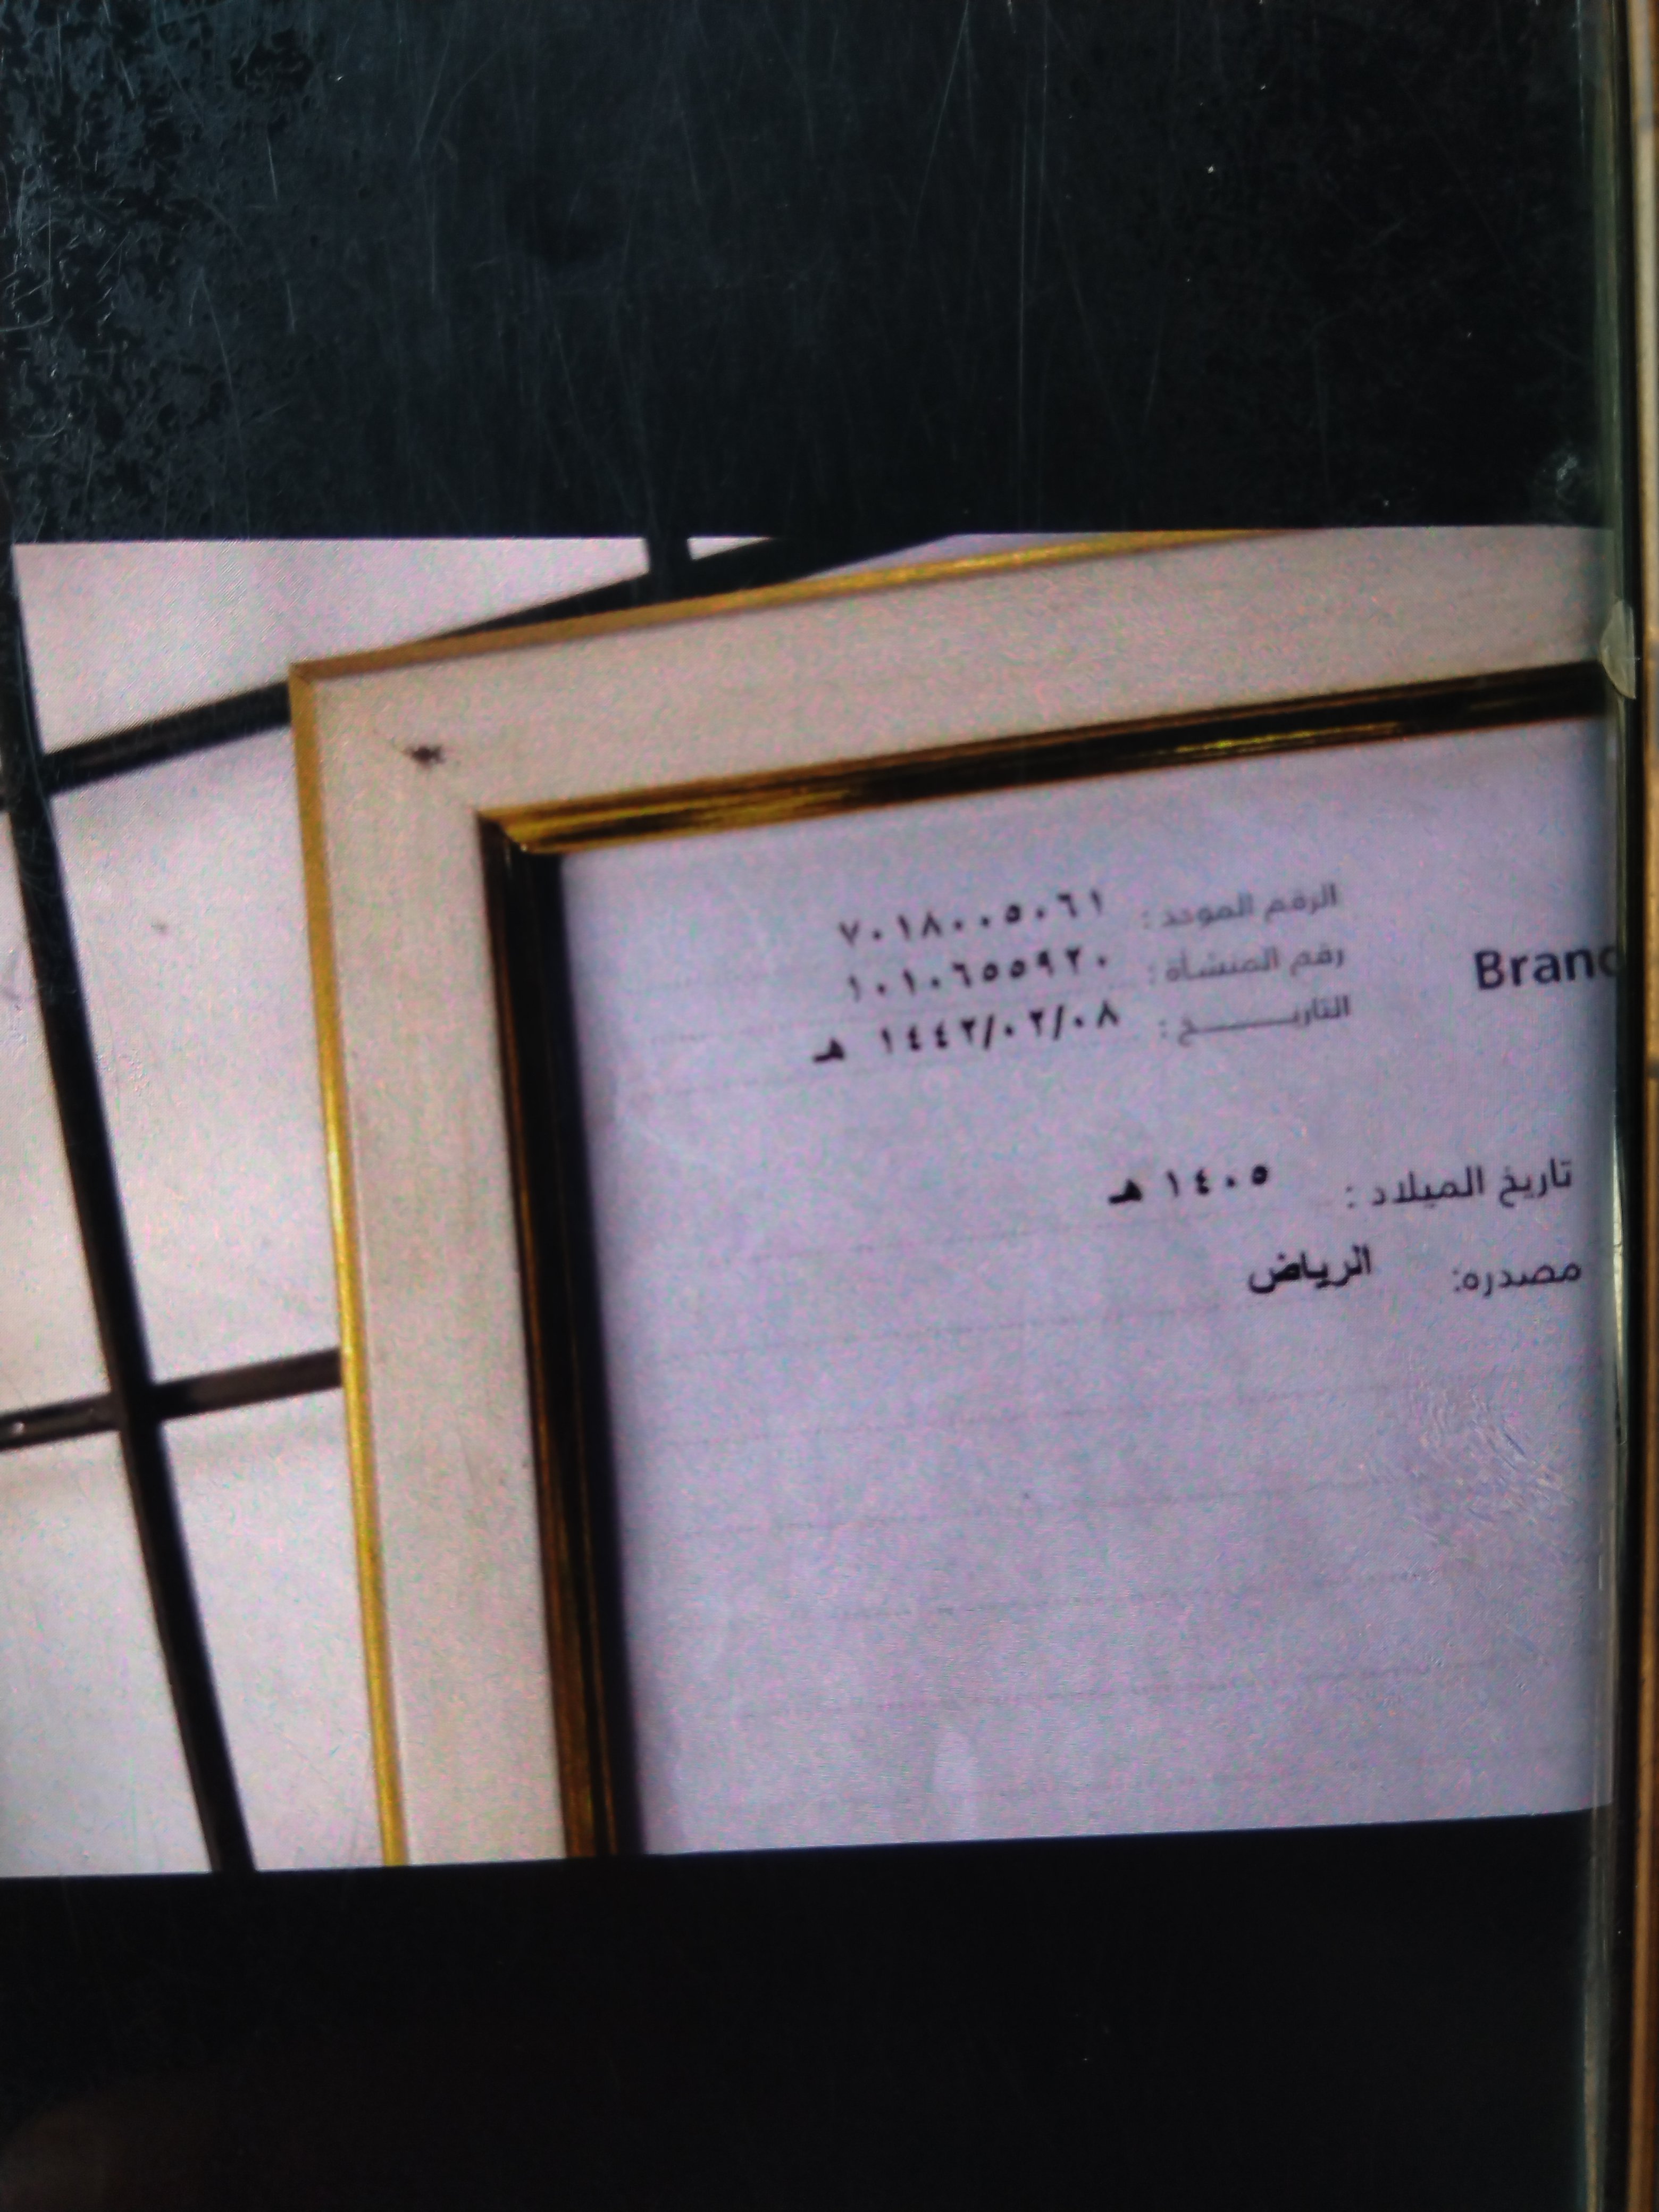 الرقم الموحد : ٧٠١٨٠٠٥٠٦١
رقم المنشأة : ١٠١٠٦٥٥٩٢٠
التاريـــــــخ : ١٤٤٢/٠٢/٠٨ هـ
Branc
تاريخ الميلاد : ١٤٠٥ هـ
مصدره: الرياض